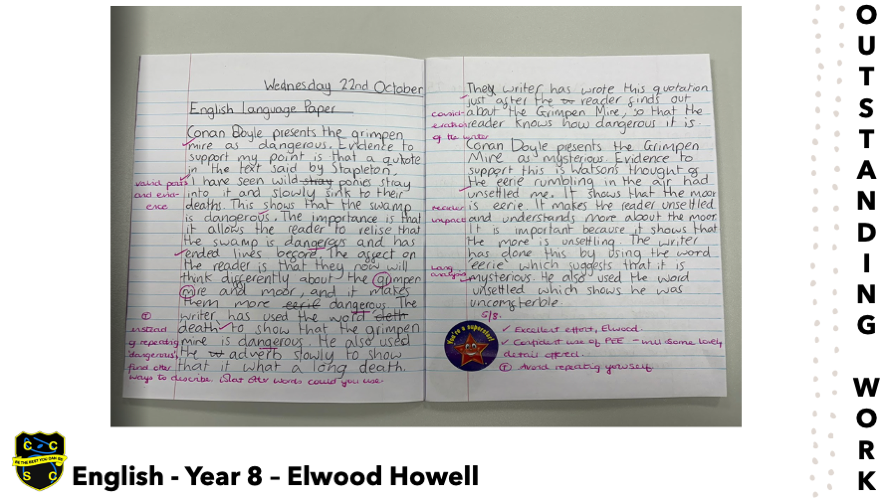 Wednesday 22nd October
English Language Paper
Conan Doyle presents the grimpen
mire as dangerous. Evidence to
support my point is that a quote
in the text said by Stapleton,
I have seen wild stray ponies stray
into it and slowly sink to their
deaths. This shows that the swamp
is dangerous. The importance is that
it allows the reader to relise that
the swamp is dangerous and has
ended lives before. The affect on
the reader is that they now will
think differently about the grimpen
mire and moor, and it makes
them more eerie dangerous. The
writer has used the word deth
death to show that the grimpen
mire is dangerous. He also used
the adverb slowly to show
that it what a long death.
valid point
and evid-
ence
instead
of repeating
'dangerous',
find other
ways to describe. What other words could you use.
They writer has wrote this quotation
just after the reader finds out
about the Grimpen Mire, so that the
reader knows how dangerous it is.
Conan Doyle presents the Grimpen
Mire as mysterious. Evidence to
support this is Watsons thought of
the eerie rumbling in the air had
unsettled me. It shows that the moor
is eerie. It makes the reader unsettled
and understands more about the moor.
It is important because it shows that
the more is unsettling. The writer
has done this by using the word
'eerie' which suggests that it is
mysterious. He also used the word
unsettled which shows he was
uncomfterble.
consid-
eration
of the writer
reader
impact
lang
analysis
5/8.
You're a superstar!
Excellent effort, Elwood.
Confident use of PEE - with some lovely
detail offered.
Avoid repeating yourself
OUTSTANDING WORK
C C
BE THE BEST YOU CAN BE
S C
English - Year 8 – Elwood Howell